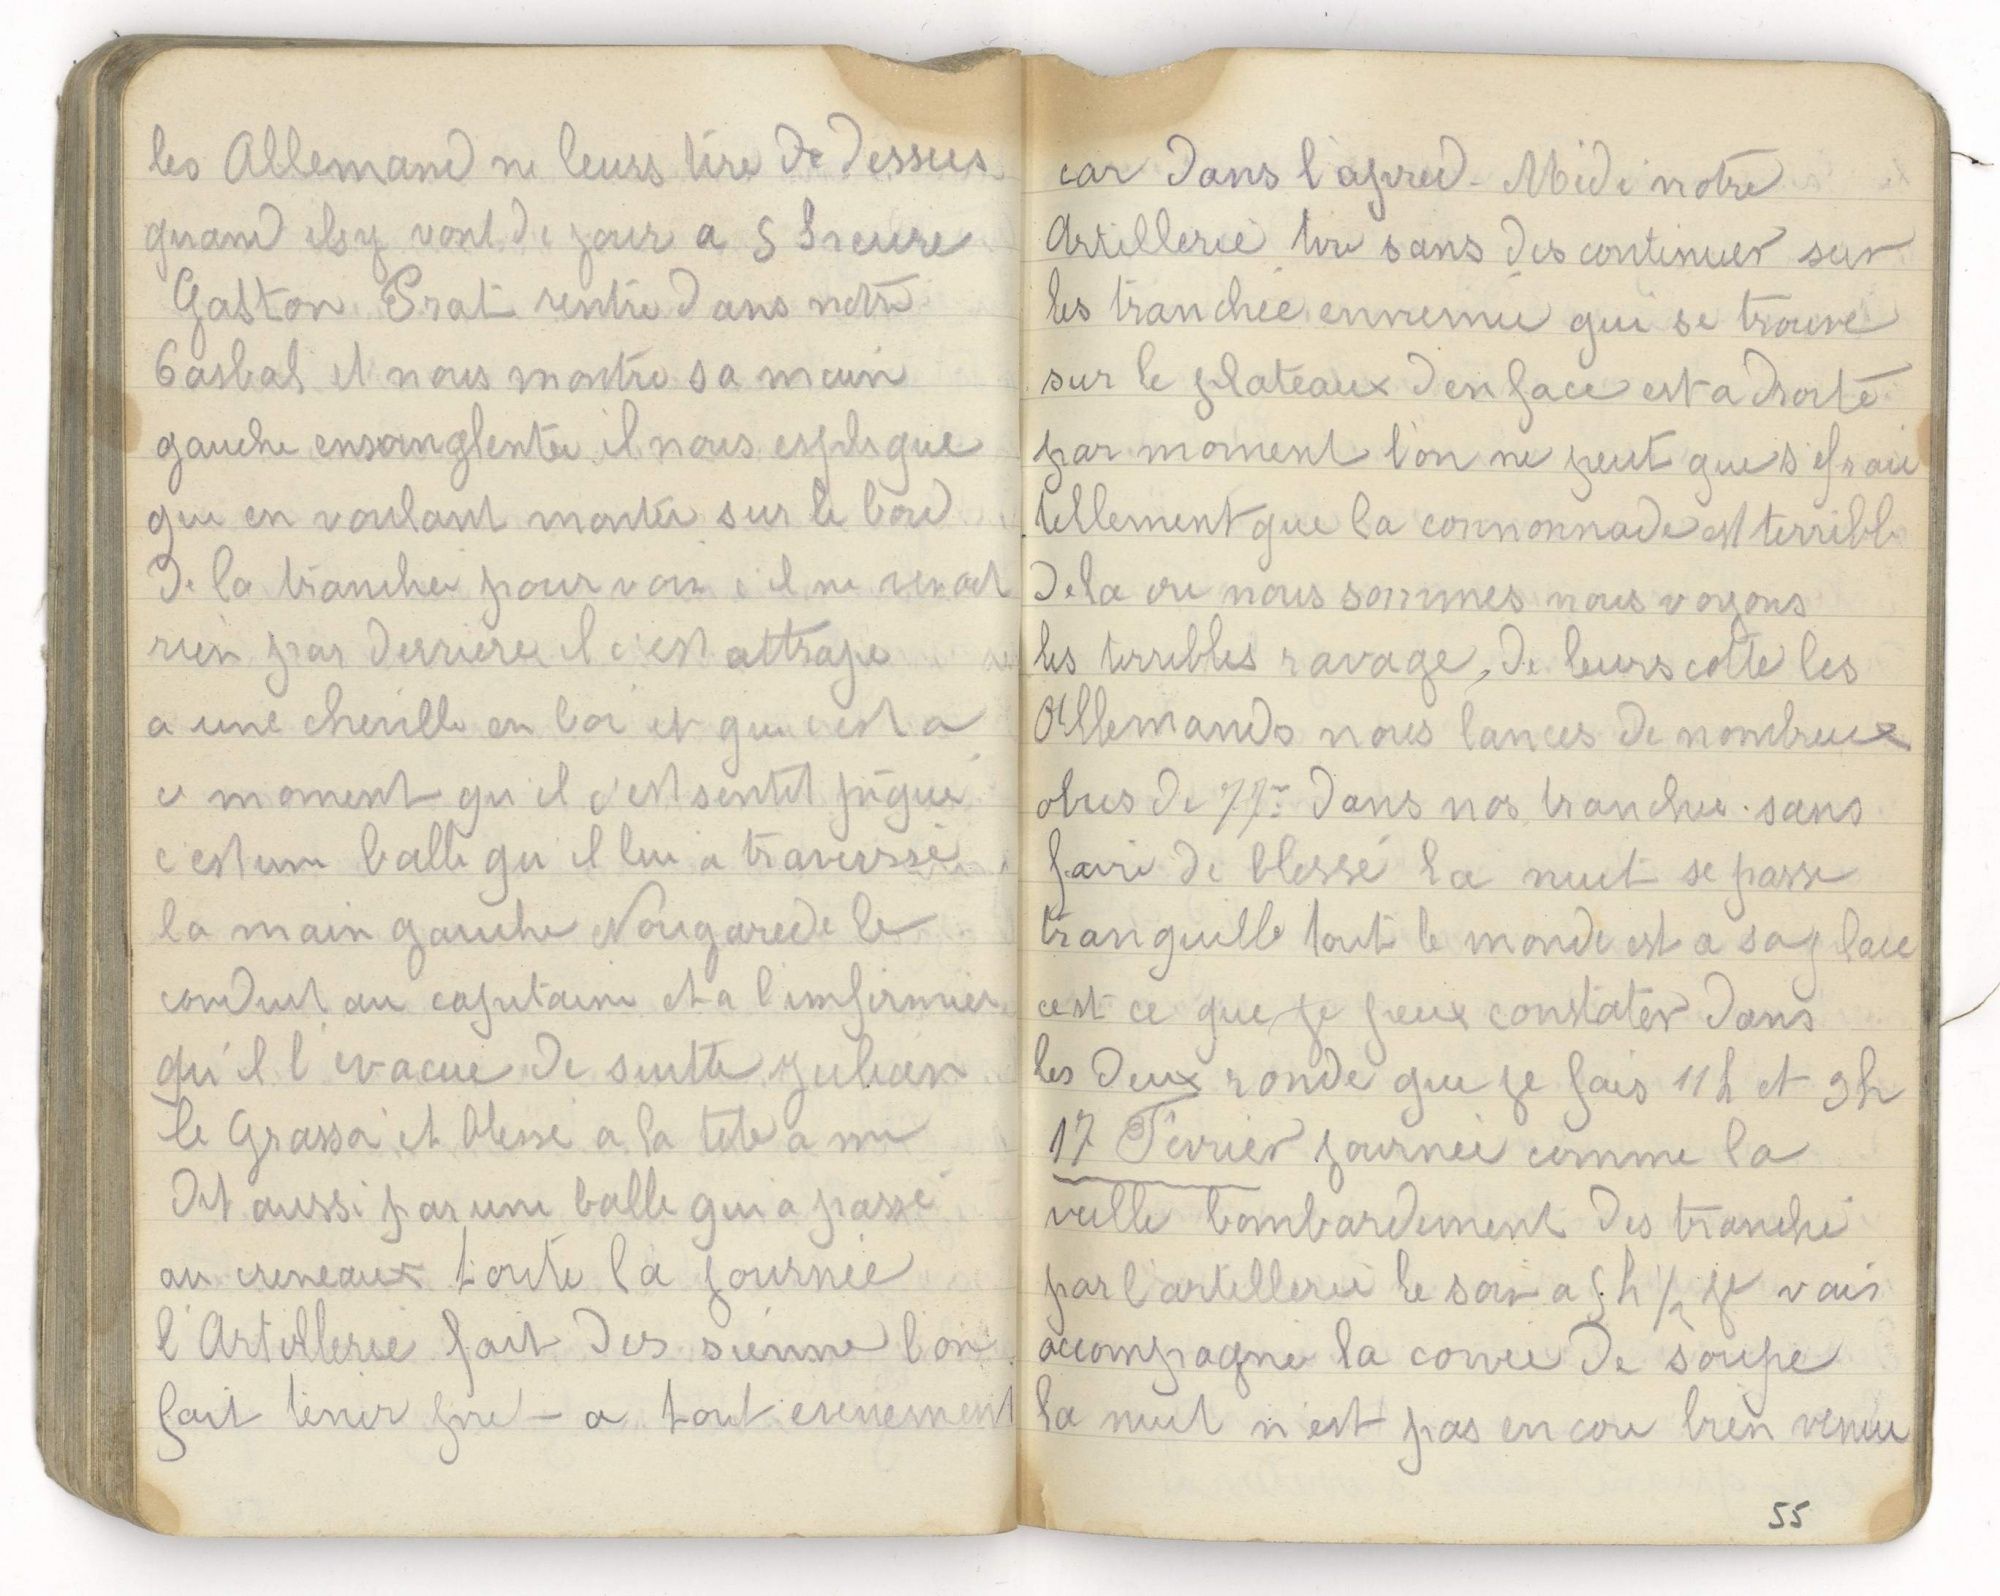 les Allemand ne leurs tire de dessus
quand ils y vont de jour a 5 heure
Gaston Prat rentre dans notre
Casbah et nous montre sa main
gauche ensanglentée il nous esplique
que en voulant montée sur le bord
de la tranchée pour voir s'il ne venait
rien par derriere il c'est attrape
a une cheville en boi et que c'est a
ce moment qu'il c'est sentit piqué
c'est une balle qu'il lui a traversé
la main gauche Nougarede le
conduit au capitaine et a l'infirmier
qu'il l'evacue de suitte Julian
le Grassa et blessé a la tete a mi
dit aussi par une balle qui a passé
au creneaux toute la journée
l'Artillerie fait des sienne l'on
fait tenir pret a tout evenement
car dans l'apred-Midi notre
Artillerie tire sans descontinuer sur
les tranchée ennemie qui se trouve
sur le plateaux d'en face est a droite
par moment l'on ne peut que s'efraié
tellement que la connonnade est terrible
de la ou nous sommes nous voyons
les terribles ravage, de leurs cotté les
Allemands nous lances de nombreux
obus de 77m dans nos tranchée sans
faire de blessé la nuit se passe
tranquille tout le monde est a sa place
cest ce que je peux constater dans
les deux ronde que je fais 11h et 3h
17 Fevrier journée comme la
veille bombardement des tranché
par l'artillerie le soir a 5h 1/2 je vais
accompagné la corvée de soupe
la nuit n'est pas encore bien venue
55